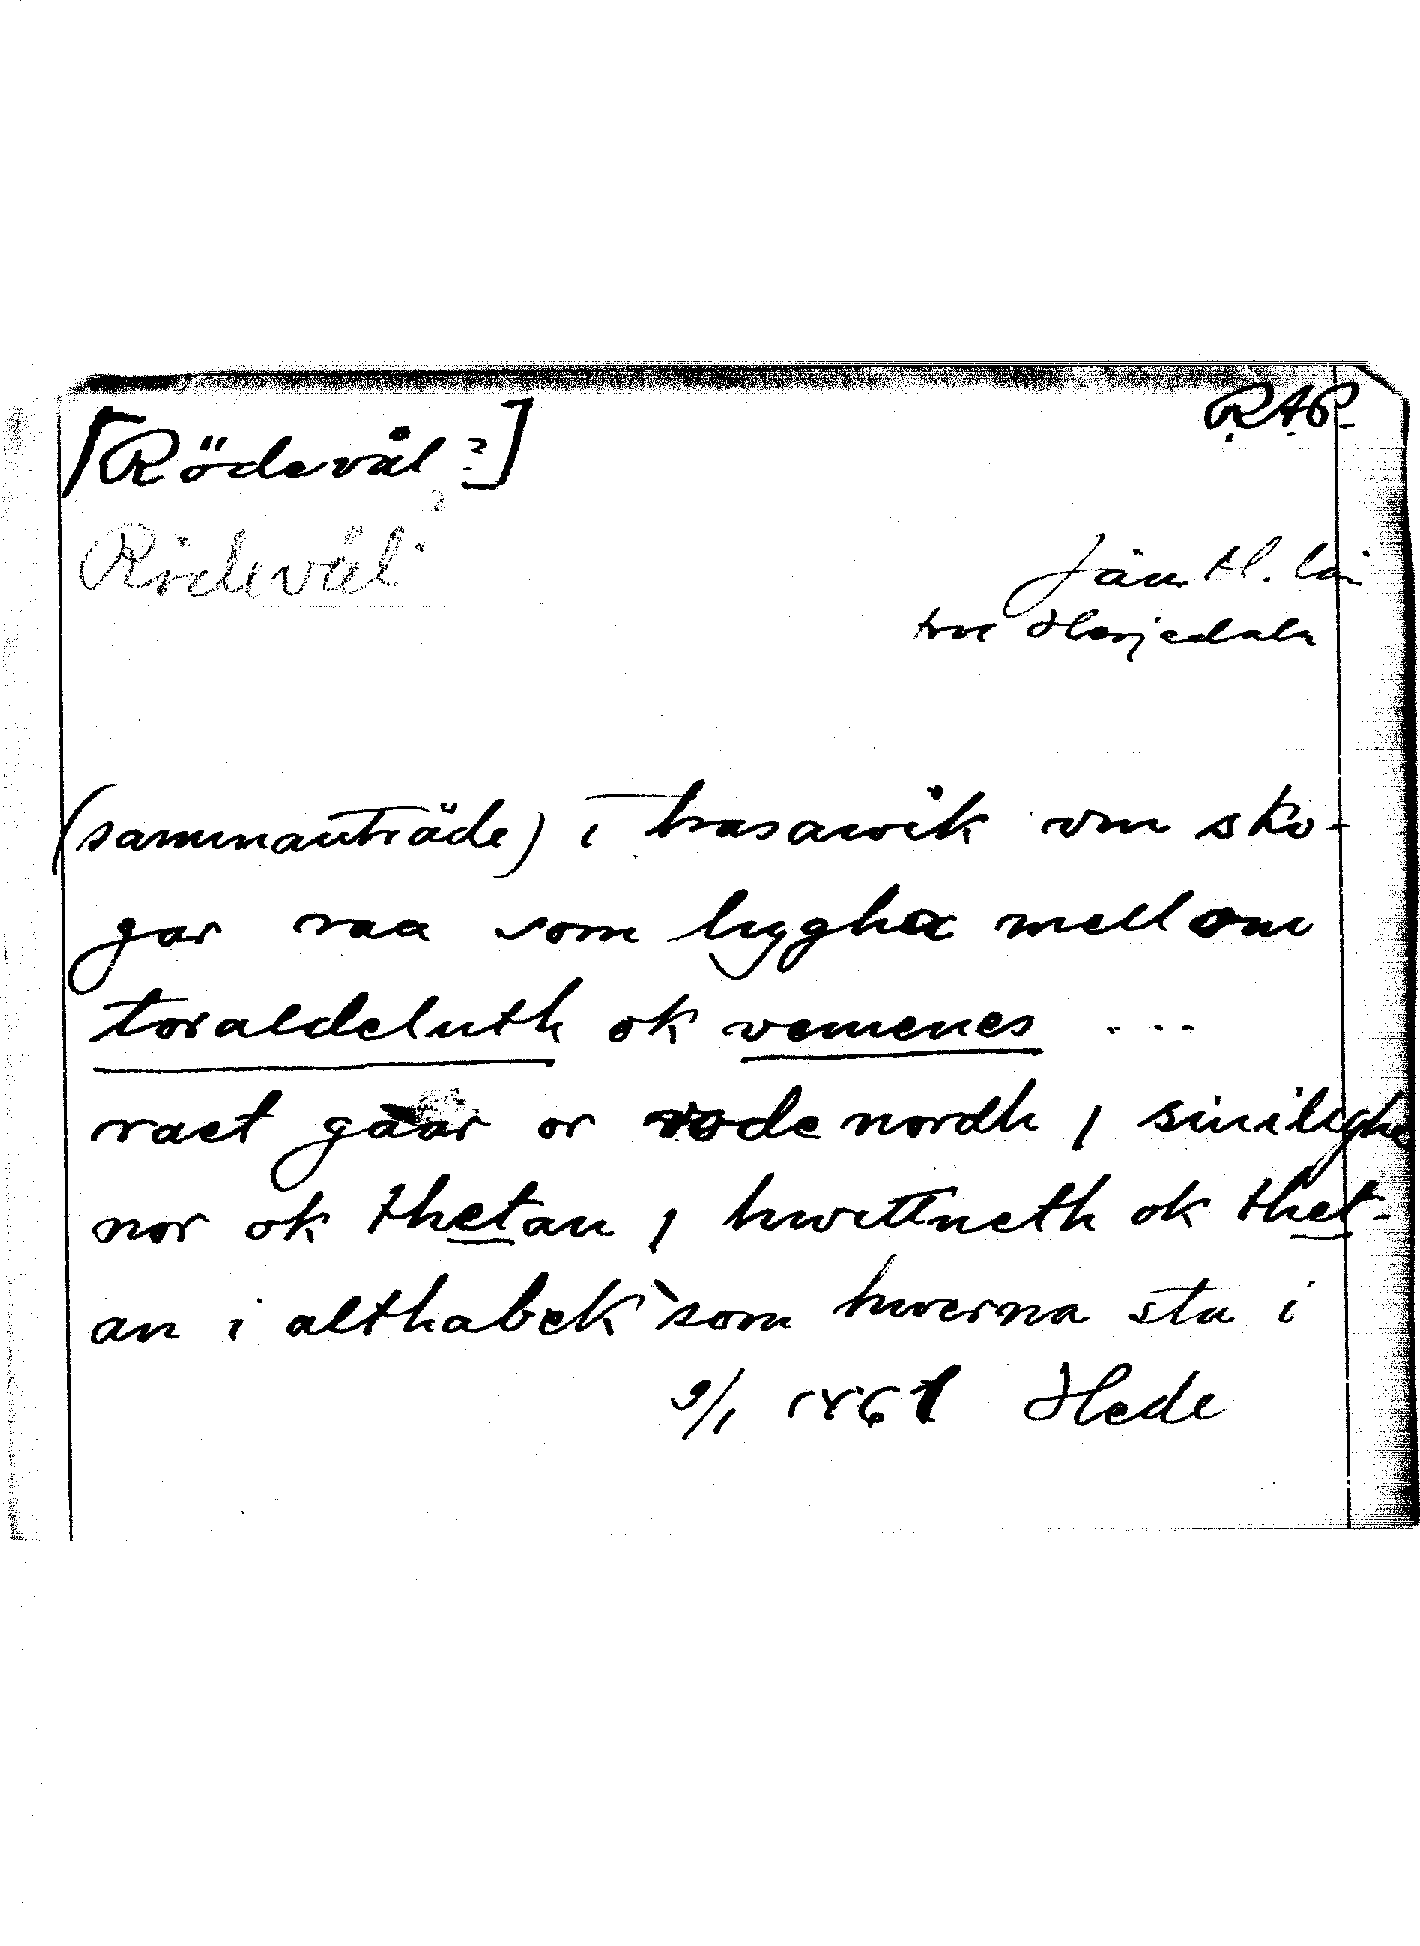 [Rödevål?]
R.A.P.
Rödeväl?
Jämtl. län
Herjedalen
(sammanträde) i trasawik vm sko-
gar raa som lygghia mellom
toraldeluth ok vemenes ...
raet gaar or rode nordh j
nor ok thetan j hwittneth ok thet-
an i althabek som hwerna sta i
9/1 1461 Hede